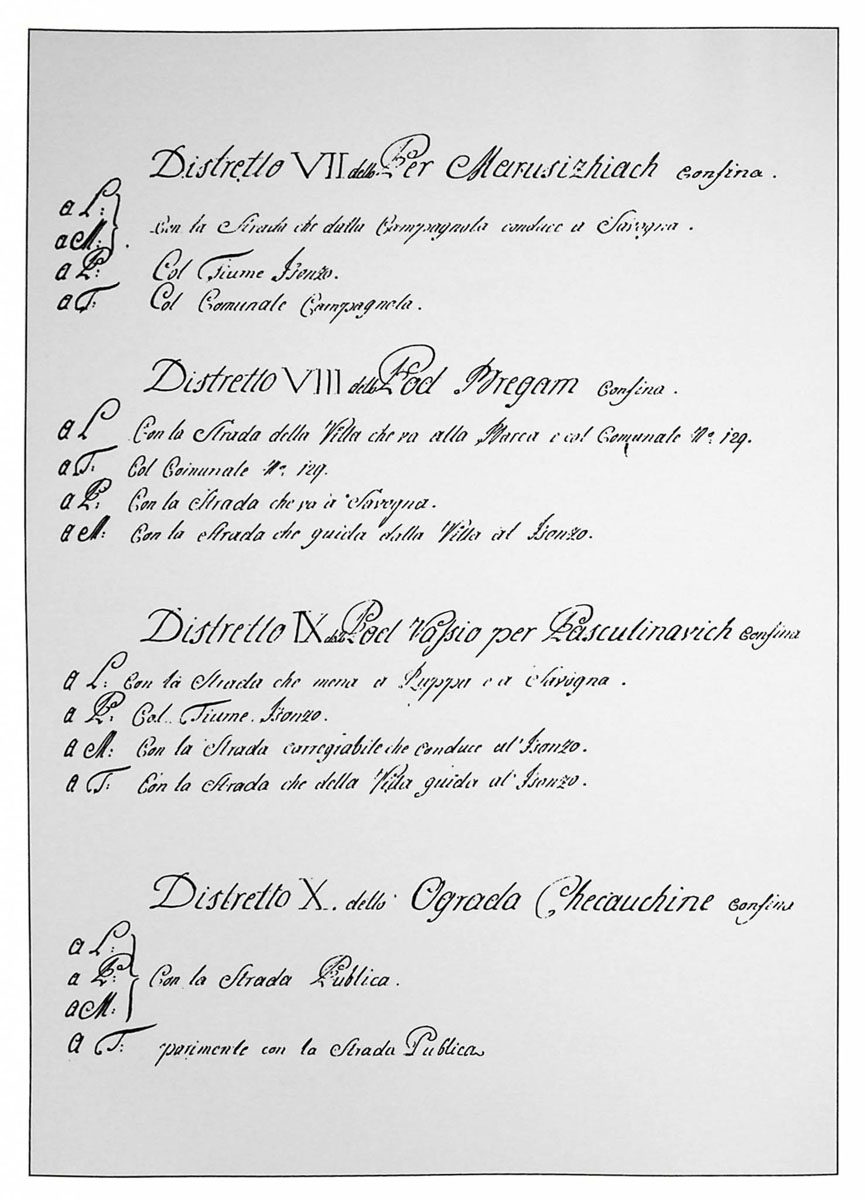 Distretto VII detto Per Marusizhiach confina.
a L:
a M:. Con la Strada che dalla Campagnola conduce a Savogna.
a P: Col Fiume Isonzo.
a T: Col Comunale Campagnola.
Distretto VIII detto Pod Bregam confina.
a L Con la Strada della Villa che va alla Barca e col Comunale No. 129.
a T: Col Comunale No. 129.
a P: Con la Strada che va a Savogna.
a M: Con la strada che guida dalla Villa al Isonzo.
Distretto IX detto Pod Vassio per Pasculinavich confina
a L: Con la Strada che mena a Puppa e a Savigna.
a P: Col Fiume Isonzo.
a M: Con la Strada carregiabile che conduce al' Isonzo.
a T: Con la Strada che della Villa guida al' Isonzo.
Distretto X. detto Ograda Checauchine confina
a L:
a P: Con la Strada Publica.
a M:
a T: parimente con la Strada Publica